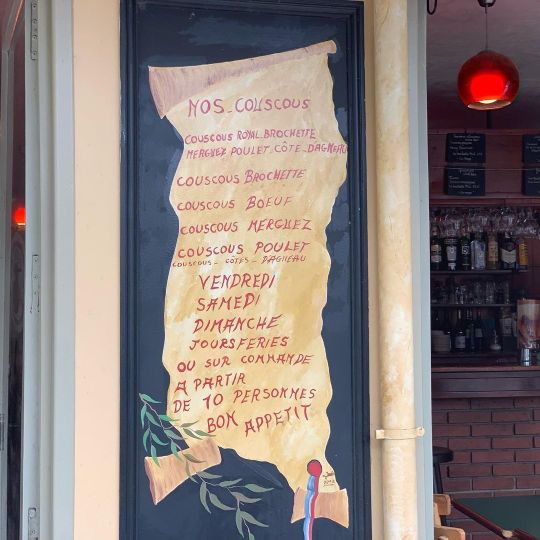 NOS_COUSCOUS
COUSCOUS ROYAL.BROCHETTE
MERGUEZ POULET.CÔTE_DAGNEAU
COUSCOUS BROCHETTE
COUSCOUS BOEUF
COUSCOUS MERGUEZ
COUSCOUS POULET
COUSCOUS_CÔTES_DAGNEAU
VENDREDI
SAMEDI
DIMANCHE
JOURS FERIES
OU SUR COMMANDE
A PARTIR
DE 10 PERSONMES
BON APPETIT